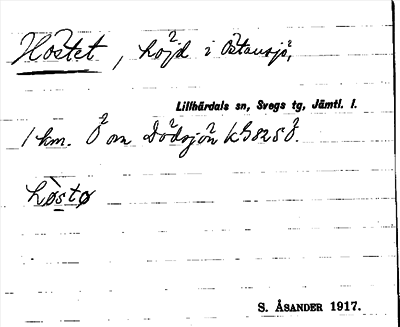 Hostet, höjd i Östansjö,
Lillhärdals sn, Svegs tg, Jämtl. l.
1 km. Ö om Dödsjön kG825Ö.
hòstø
S. ÅSANDER 1917.